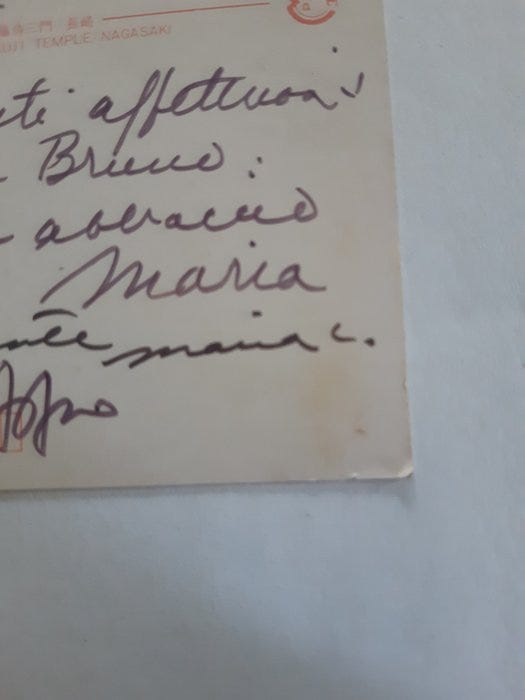 三門 長崎
UJI TEMPLE, NAGASAKI
uti affettuosi
Bruno:
abbraccio
Maria
maria c.